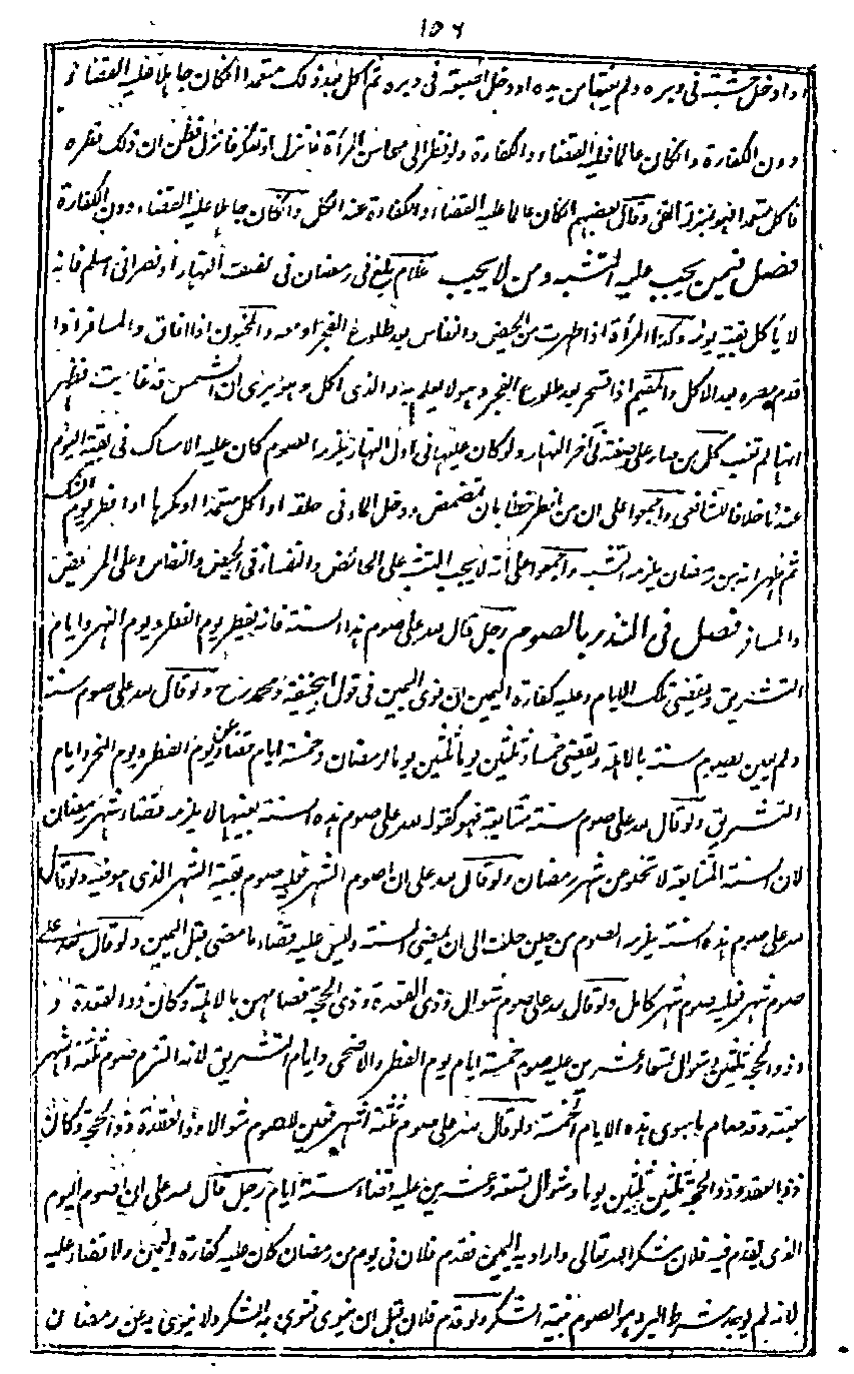 ١٥٦
او ادخل خشبة فى دبره ولم يغيبها من يده او ادخل اصبعه فى دبره ثم اكل بعد ذلك متعمدا ان كان جاهلا فعليه القضاء
دون الكفارة وان كان عالما فعليه القضاء والكفارة ولو نظر الى محاسن المرأة فانزل او تفكر فانزل فظن ان ذلك فطره
فاكل متعمدا فهو بمنزلة القئ وقال بعضهم ان كان عالما عليه القضاء والكفارة عند الكل وان كان جاهلا عليه القضاء دون الكفارة
فصل فيمن يجب عليه التشبه ومن لا يجب غلام بلغ فى رمضان فى نصف النهار او نصرانى اسلم فانه
لا يأكل بقية يومه وكذا المرأة اذا طهرت من الحيض والنفاس بعد طلوع الفجر او معه والمجنون اذا افاق والمسافر اذا
قدم مصره بعد الاكل والمقيم اذا تسحر بعد طلوع الفجر وهو لا يعلم به والذى اكل وهو يرى ان الشمس قد غابت فظهر
انها لم تغب كل من صار على صفة فى آخر النهار ولو كان عليها فى اول النهار يلزمه الصوم كان عليه الامساك فى بقية اليوم
عندنا خلافا للشافعى واجمعوا على ان من افطر خطأ بان تمضمض ودخل الماء فى حلقه او اكل متعمدا او مكرها او افطر يوم الشك
ثم ظهر انه من رمضان يلزمه التشبه واجمعوا على انه لا يجب التشبه على الحائض والنفساء فى الحيض والنفاس وعلى المريض
والمسافر فصل فى النذر بالصوم رجل قال لله على صوم هذه السنة فانه يفطر يوم الفطر ويوم النحر وايام
التشريق ويقضى تلك الايام وعليه كفارة اليمين ان نوى اليمين فى قول ابيحنيفة ومحمد رح ولو قال لله على صوم سنة
ولم يعين يصوم سنة بالاهلة ويقضى خمسا وثلثين يوما ثلثين يوما لرمضان وخمسة ايام قضاء عن يوم الفطر ويوم النحر وايام
التشريق ولو قال لله على صوم سنة متتابعة فهو كقوله لله على صوم هذه السنة بعينها لا يلزمه قضاء شهر رمضان
لان السنة المتتابعة لا تخلو عن شهر رمضان ولو قال لله على ان اصوم الشهر فعليه صوم بقية الشهر الذى هو فيه ولو قال
لله على صوم هذه السنة يلزمه الصوم من حين حلف الى ان يمضى السنة وليس عليه قضاء ما مضى قبل اليمين ولو قال لله على
صوم شهر فعليه صوم شهر كامل ولو قال لله على صوم شوال وذى القعدة وذى الحجة فصامهن بالاهلة وكان ذو القعدة
وذو الحجة ثلثين وشوال تسعا وعشرين عليه صوم خمسة ايام يوم الفطر والاضحى وايام التشريق لانه التزم صوم ثلثة اشهر
معينة وقد صام ما سوى هذه الايام الخمسة ولو قال لله على صوم ثلثة اشهر فعين للصوم شوالا وذا القعدة وذا الحجة وكان
ذو القعدة وذو الحجة ثلثين ثلثين يوما وشوال تسعة وعشرين عليه قضاء ستة ايام رجل قال لله على ان اصوم اليوم
الذى يقدم فيه فلان شكرا لله تعالى واراد به اليمين فقدم فلان فى يوم من رمضان كان عليه كفارة اليمين ولا قضاء عليه
لانه لم يوجد شرط البر وهو الصوم بنية الشكر ولو قدم فلان قبل ان ينوى فنوى به الشكر ولا ينوى به عن رمضان